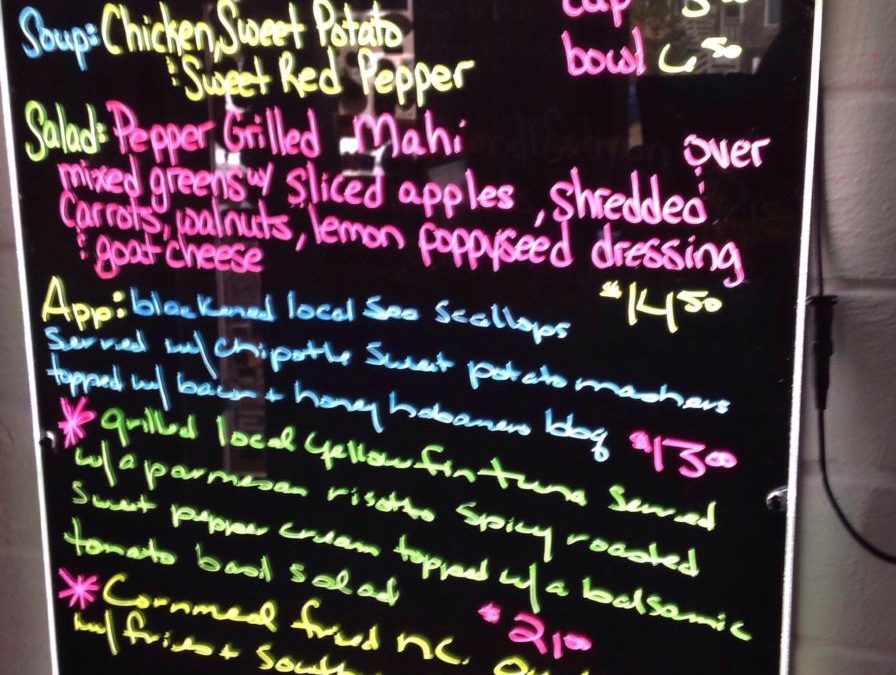 Soup: Chicken, Sweet Potato cup
& Sweet Red Pepper bowl 6 50
Salad: Pepper Grilled Mahi over
mixed greens w/ sliced apples, shredded
Carrots, walnuts, lemon poppyseed dressing
& goat cheese $14 50
App: blackened local sea scallops
Served w/ chipotle sweet potato mashers
topped w/ bacon + honey habanero bbq $13 00
* grilled local yellowfin tuna served
w/ a parmesan risotto spicy roasted
sweet pepper cream topped w/ a balsamic
tomato basil salad $21 00
* Cornmeal fried nc.
w/ fries +